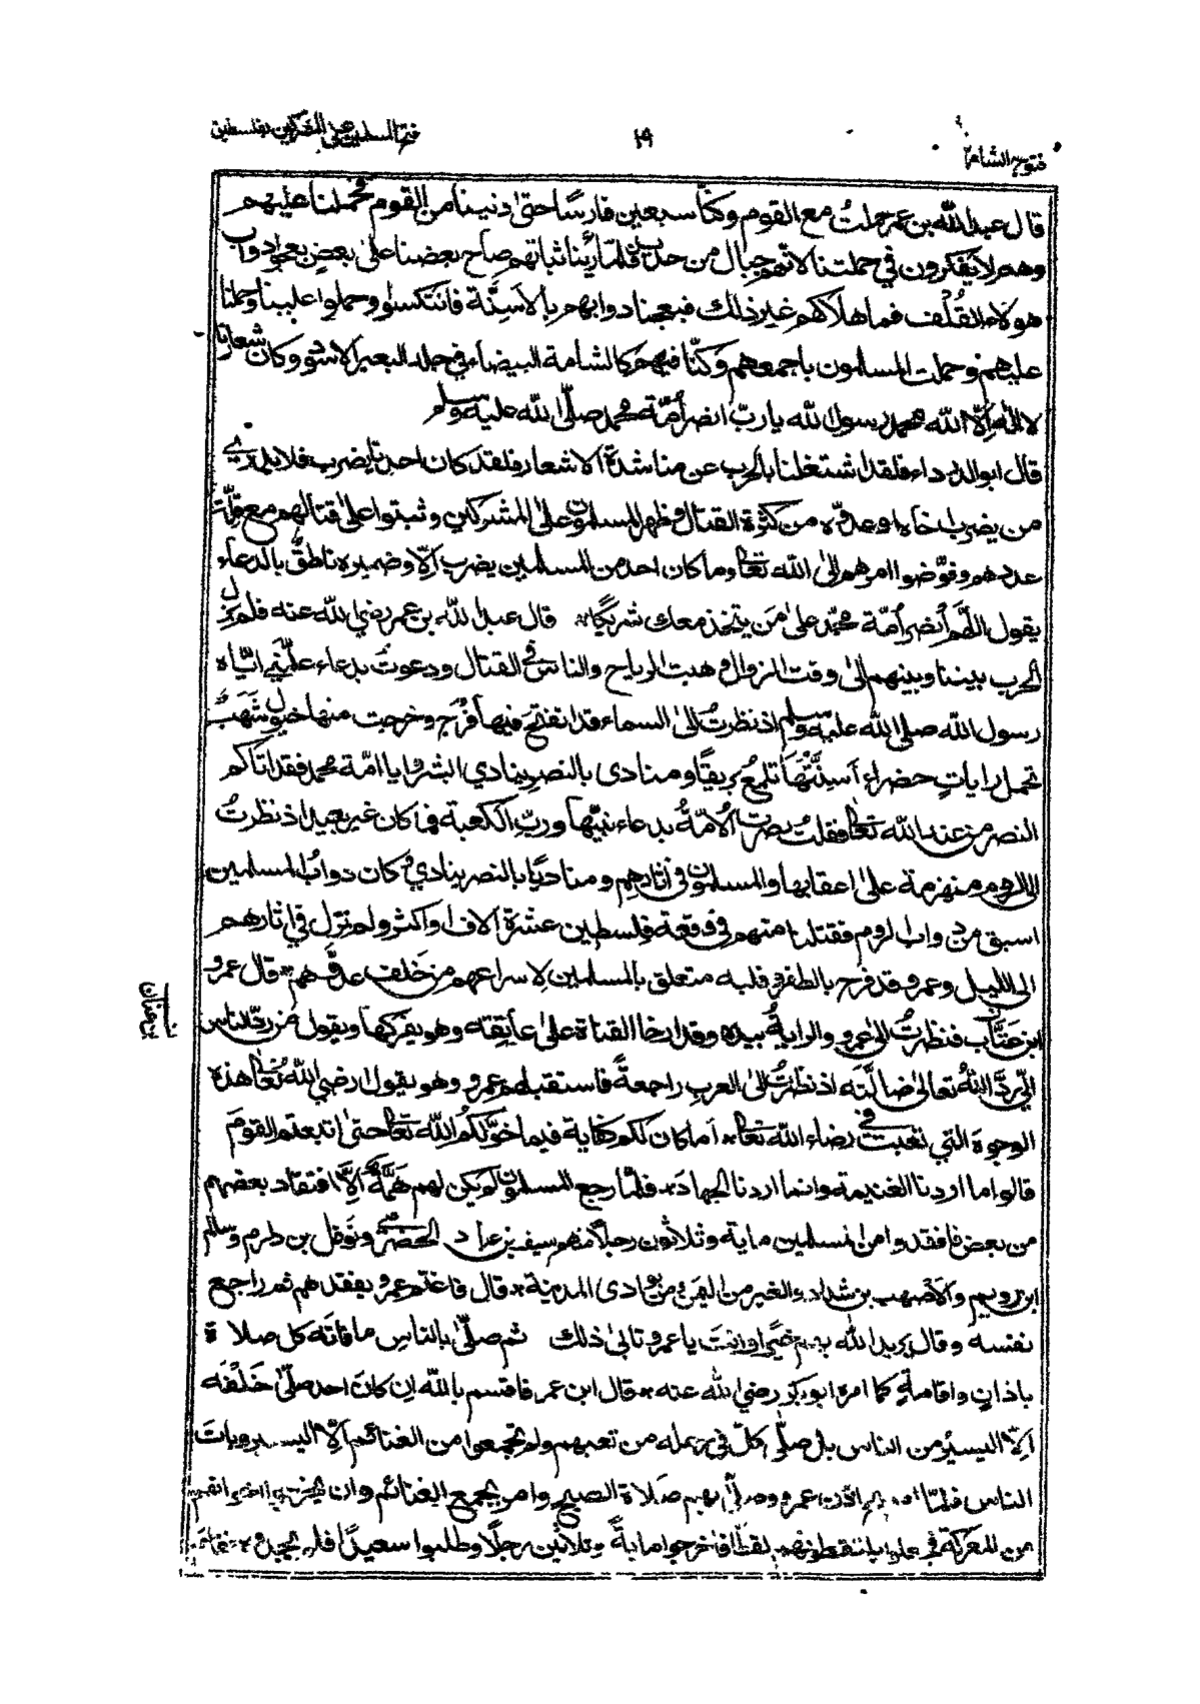 فتوح الشام
١٩
فتح المسلمين على المشركين بفلسطين
قال عبد الله بن عمر حملتُ مع القوم وكنّا سبعين فارسًا حتى دنينا من القوم فحملنا عليهم
وهم لا يفكرون في حملتنا لانهم جبال من حديد فلمّا رأينا ثباتهم صاح بعضنا على بعض بعجوا دواب
هولاء القُلْف فما هلاكهم غير ذلك فبعجنا دوابهم بالاسِنَّة فانتكسوا وحملوا علينا وحملنا
عليهم وحملت المسلمون باجمعهم وكنّا فيهم كالشامة البيضاء في جلد البعير الاسود وكان شعارنا
لا اله اِلّا الله محمد رسول الله يا ربّ انصر أمّة محمد صلّى الله عليه وسلم
قال ابو الدرداء فلقد اشتغلنا بالحرب عن مناشدة الاشعار فلقد كان احدنا يضرب فلا يدري
من يضرب اخاه او عدوّه من كثرة القتال وظهر المسلمون على المشركين وثبتوا على قتالهم مع قلّة
عددهم وفوّضوا امرهم الى الله تعالى وما كان احد من المسلمين يضرب اِلّا وضميره ناطقٌ بالدعاء
يقول اللّهم اُنصر اُمّة محمّد على مَن يتخذ معك شريكًا * قال عبد الله بن عمر رضي الله عنه فلم يزل
الحرب بيننا وبينهم الى وقت الزوال وهبت الرياح والناس في القتال ودعوتُ بدعاء علّمني ايّاه
رسول الله صلى الله عليه وسلم اذ نظرتُ الى السماء قد انفتح فيها فُرَج وخرجت منها خيولٌ شُهُبٌ
تحمل رايات خضراء أسِنَّتُها تلمعُ بريقًا ومنادى بالنصر ينادي البشروا يا امّة محمد فقد اتاكم
النصر من عند الله تعالى فقلت نصرت الأمّةُ بدعاء نبيّها وربّ الكعبة فما كان غير بعيد اذ نظرتُ
الى الروم منهزمة على اعقابها والمسلمون في اثارهم ومناديًا بالنصر ينادي وكان دوابُ المسلمين
اسبق من دواب الروم فقتلنا منهم في وقعة فلسطين عشرة الاف او اكثر ولم نزل في اثارهم
الى الليل وعمرو قد فرح بالظفر وقلبه متعلق بالمسلمين لاسراعهم من خَلف عدوّهم * قال عمرو
ابن عَتَّاب فنظرتُ الى عمرو والرايةُ بيده وقد ارخا القناة على عاتِقِه وهو يفركها ويقول من ردّ الناس
الي ردَّ اللهُ تعالى ضالّته اذ نظرتُ الى العرب راجعةً فاستقبلهم عمرو وهو يقول ارضي الله تعالى هذه
الوجوة التي تعبت في رضاء الله تعالى * أما كان لكم كفاية فيما خوّلكم الله تعالى حتى اتبعتم القومَ
قالوا ما اردنا الغنيمة وانما اردنا الجهاد * فلمّا رجع المسلمون لم يكن لهم هَمَّةٌ اِلاّ افتقاد بعضهم
من بعض فافقدوا من المسلمين ماية وثلاثون رجلاً منهم سيف بن عباد الحضرمي ونوفل بن دارم وسالم
ابن رويم والاَصْهب بن شداد والغير من اليمن ومن بوادى المدينة * قال فاغتم عمرو بفقدهم ثم راجع
نفسه وقال يريد الله بهم خيرًا وانتَ يا عمرو تابى ذلك ثم صلّى بالناس ما فاتَه كل صلاة
باذانٍ واقامةٍ كما امره ابو بكر رضي الله عنه * قال ابن عمر فاقسم بالله اِن كان احد صلّى خَلْفَه
اِلّا اليسيرُ من الناس بل صلّى كلّ في رحله من تعبهم ولم تجمعوا من الغنائم اِلّا اليسير وبات
الناس فلمّا عمرو وصلّى بهم صَلاة الصبح وامر بجمع الغنائم وان
من المعركة فلقطا فاخرجوا ماية وثلاثين رجلًا وطلبوا سعيدًا فلم يجدوه